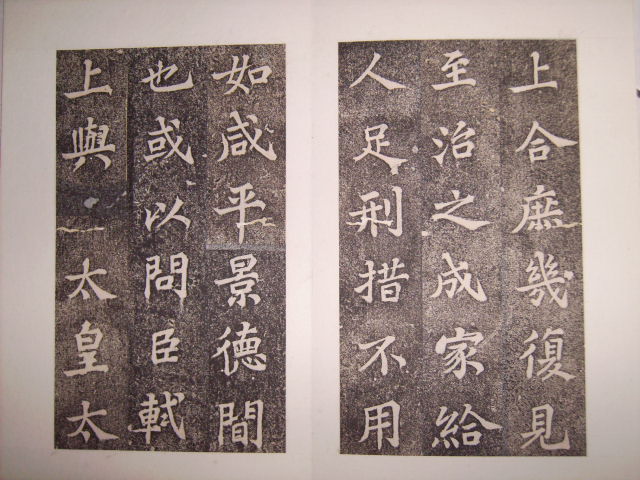 上合庶幾復見
至治之成家給
人足刑措不用
如咸平景德間
也或以問臣軾
上與太皇太